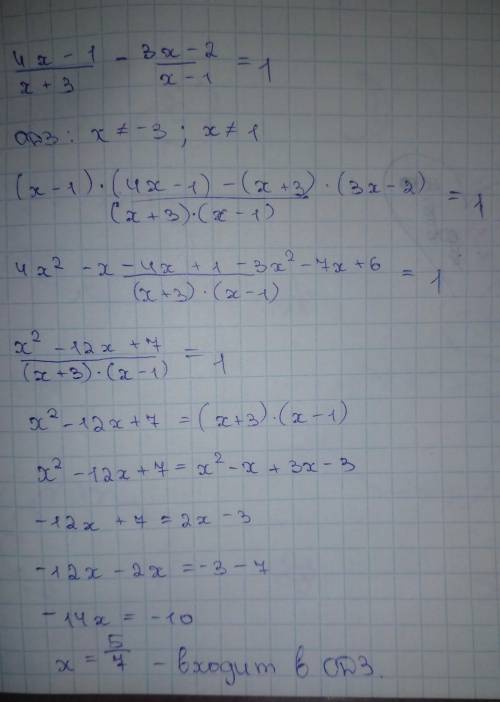 (4x - 1)/(x + 3) - (3x - 2)/(x - 1) = 1
ОДЗ: x ≠ -3 ; x ≠ 1
((x - 1) · (4x - 1) - (x + 3) · (3x - 2))/((x + 3) · (x - 1)) = 1
(4x² - x - 4x + 1 - 3x² - 7x + 6)/((x + 3) · (x - 1)) = 1
(x² - 12x + 7)/((x + 3) · (x - 1)) = 1
x² - 12x + 7 = (x + 3) · (x - 1)
x² - 12x + 7 = x² - x + 3x - 3
-12x + 7 = 2x - 3
-12x - 2x = -3 - 7
-14x = -10
x = 5/7 - входит в ОДЗ.